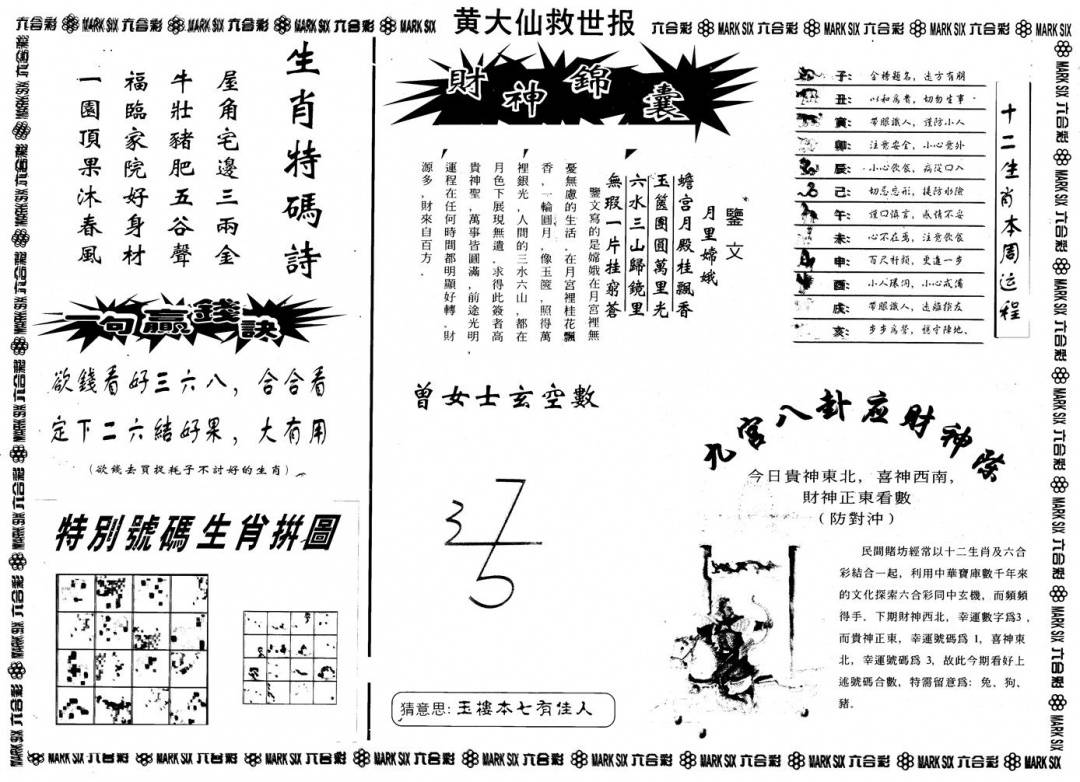 黄大仙救世报
六合彩 MARK SIX 六合彩 MARK SIX 六合彩 MARK SIX 六合彩 MARK SIX
六合彩 MARK SIX 六合彩 MARK SIX 六合彩 MARK SIX 六合彩 MARK SIX
生肖特碼詩
屋角宅邊三兩金
牛壯豬肥五谷聲
福臨家院好身材
一園頂果沐春風
一句贏錢訣
欲錢看好三六八，合合看
定下二六結好果，大有用
(欲錢去買捉耗子不討好的生肖)
特別號碼生肖拼圖
財神錦囊
鑒文
月里嫦娥
蟾宮月殿桂飄香
玉篋團圓萬里光
六水三山歸鏡里
無瑕一片挂窮蒼
鑒文寫的是嫦娥在月宮裡無
憂無慮的生活，在月宮裡桂花飄
香，一輪圓月，像玉篋，照得萬
裡銀光，人間的三水六山，都在
月色下展現無遺，求得此簽者高
貴神聖，萬事皆圓滿，前途光明
運程在任何時間都明顯好轉，財
源多，財來自百方．
曾女士玄空數
3
7
5
猜意思: 玉樓本七有佳人
十二生肖本周运程
子: 金榜題名，遠方有朋
丑: 以和爲貴，切勿生事
寅: 帶眼識人，謹防小人
卯: 注意安全，小心意外
辰: 小心飲食，病從口入
巳: 切忌忘形，提防水險
午: 謹口慎言，感情不妥
未: 心不在焉，注意飲食
申: 百尺杆頭，更進一步
酉: 小人環伺，小心戒備
戌: 帶眼識人，遠離損友
亥: 步步爲營，穩守陣地．
九宮八卦应财神祭
今日貴神東北，喜神西南，
財神正東看數
（防對沖）
民間賭坊經常以十二生肖及六合
彩結合一起，利用中華寶庫數千年來
的文化探索六合彩同中玄機，而頻頻
得手．下期財神西北，幸運數字爲3，
而貴神正東，幸運號碼爲 1，喜神東
北，幸運號碼爲 3，故此今期看好上
述號碼合數，特需留意爲：兔、狗、
豬．
MARK SIX 六合彩 MARK SIX 六合彩 MARK SIX 六合彩 MARK SIX 六合彩 MARK SIX 六合彩 MARK SIX 六合彩 MARK SIX 六合彩 MARK SIX 六合彩 MARK SIX 六合彩